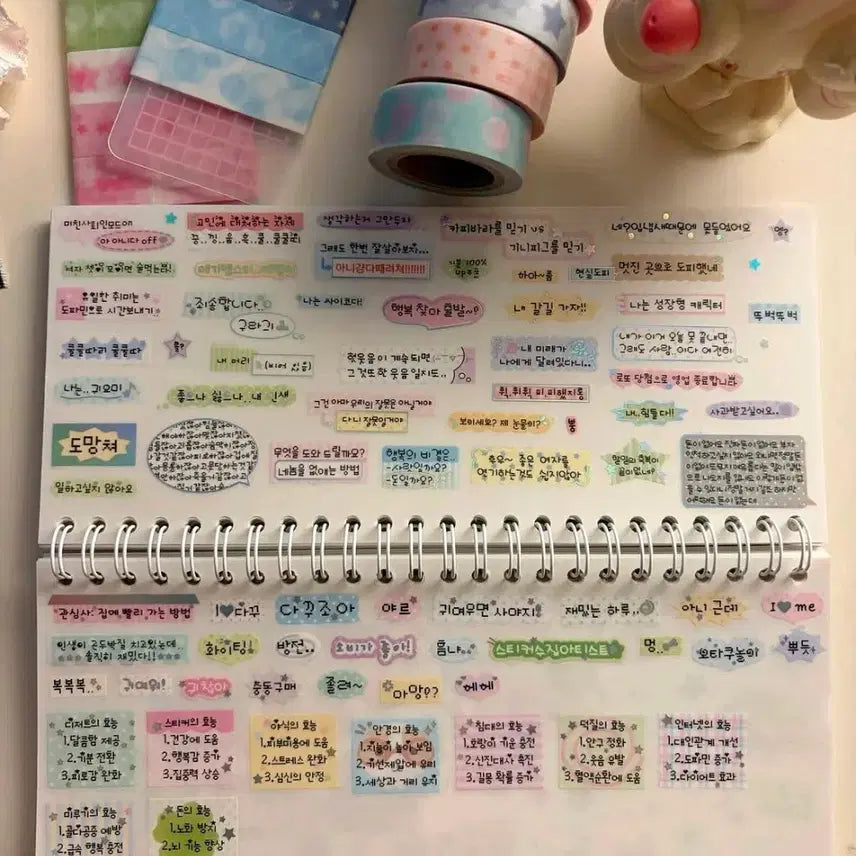 미친사회인모드ON
아 아니다 off
고민에 대처하는 자세
생각하는거 그만두자
카피바라를 믿기 vs
기니피그를 믿기
그래도 한번 잘살아보자...
아니걍다때려쳐!!!!!!!
기분 100%
하아~품
현실도피
멋진 곳으로 도피했네
유일한 취미는
도파민으로 시간보내기..
죄송합니다..
구라긔
나는 사이코다!
행복 찾아 출발~?
내 갈길 가자!!
나는 성장형 캐릭터
뚜벅뚜벅
쿨쿨따리 쿨쿨따
내 머리
(비어 있음)
헛웃음이 계속되면
그것또한 웃음일지도..
내 미래가
나에게 달려있다니..
내가 이거 오늘 못 끝내면
그래도 사람.이다 여전히
나는..귀요미
좋으나 싫으나..내 인생
로또 당첨으로 영업 종료합니다.
그건 아마 우리의 잘못은 아닐거야
다 니 잘못일거야
보이세요? 제 눈물이?
뿅
내..힘들다!
사과받고싶어요..
도망쳐
무엇을 도와 드릴까요?
네놈을 없애는 방법
행복의 비결은
-사랑일까요?
-돈일까요?
일하고싶지 않아요
관심사: 집에 빨리 가는 방법
I♥다꾸
다꾸조아
야르
귀여우면 사야지!
재밌는 하루..
아니 근데
I ♥ me
인생이 곤두박질 치고있는데..
솔직히 재밌다!!
화이팅!
방전..
소비가 좋아!
흠냐..
스티커수집아티스트
멍..
오타쿠놀이
뿌듯
복복복..
귀여워!
귀찮아
충동구매
졸려~
아망??
헤헤
디저트의 효능
1.달콤함 제공
2.기분 전환
3.피로감 완화
스티커의 효능
1.건강에 도움
2.행복감 증가
3.집중력 상승
야식의 효능
1.피부미용에 도움
2.스트레스 완화
3.심신의 안정
안경의 효능
1.지능이 높아 보임
2.시선제압에 유리
3.세상과 거리 유지
침대의 효능
1.호랑이 기운 충전
2.신진대사 촉진
3.길몽 확률 증가
덕질의 효능
1.안구 정화
2.웃음 유발
3.혈액순환에 도움
인터넷의 효능
1.대인관계 개선
2.도파민 증가
3.다이어트 효과
미루기의 효능
1.골다공증 예방
2.급속 행복 충전
돈의 효능
1.노화 방지
2.뇌 기능 향상